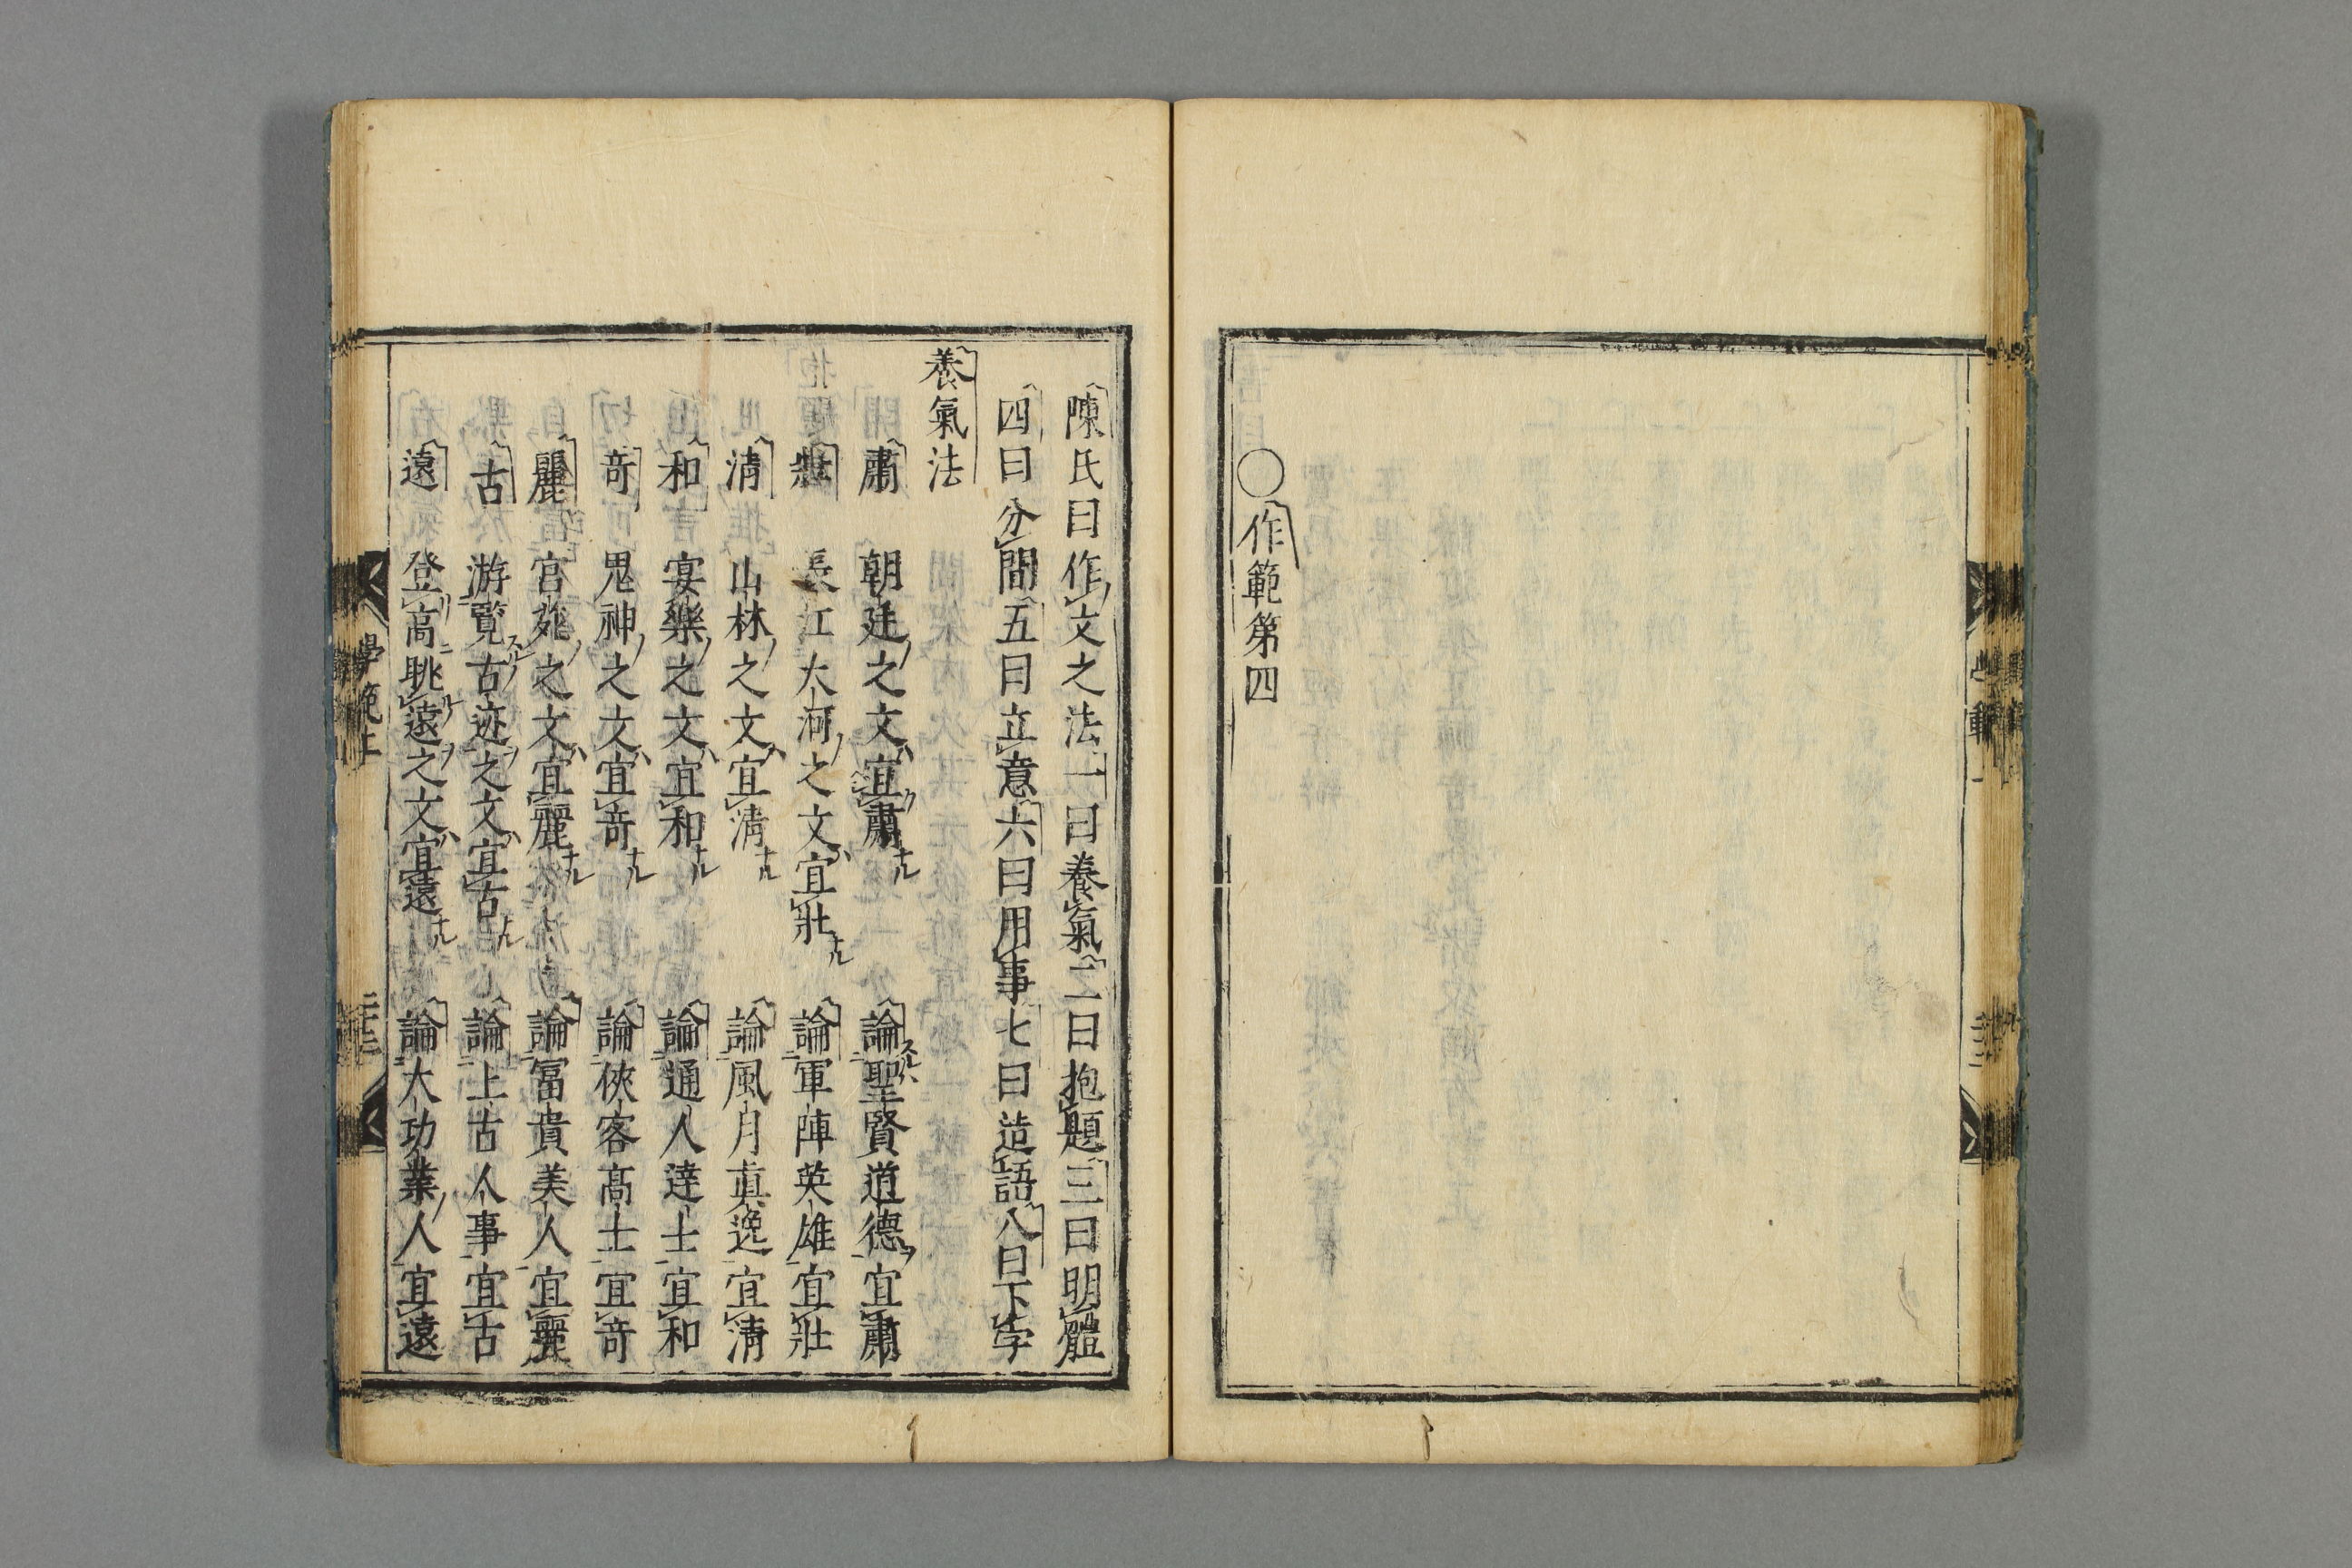 ○作範第四
陳氏曰作文之法一曰養氣二曰抱題三曰明體
四曰分間五曰立意六曰用事七曰造語八曰下字
養氣法
肅 朝廷之文ハ宜肅ナル 論聖賢道德宜肅
壯 長江大河之文ハ宜壯ナル 論軍陣英雄宜壯
清 山林之文ハ宜清ナル 論風月真逸宜清
和 宴樂之文ハ宜和ナル 論通人達士宜和
奇 鬼神之文ハ宜奇ナル 論俠客高士宜奇
麗 宫苑之文ハ宜麗ナル 論冨貴美人宜麗
古 游覽古迹之文ハ宜古ナル 論上古人事宜古
遠 登高眺遠之文ハ宜遠ナル 論大功業人宜遠
學範上